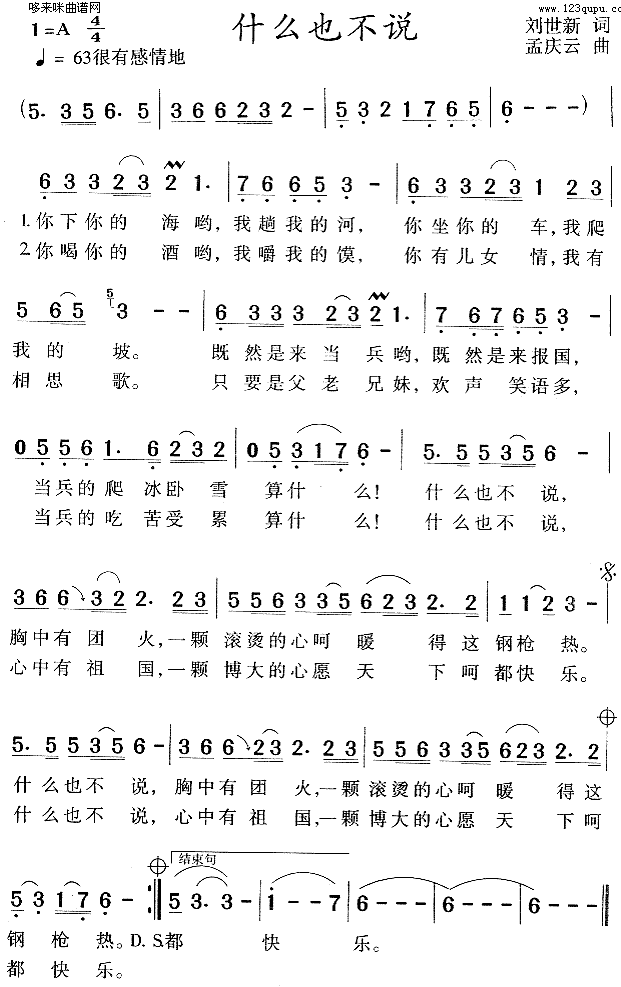 哆来咪曲谱网
www.123qupu.com
什么也不说
刘世新 词
孟庆云 曲
1=A 4/4
♩= 63很有感情地
(5. 3 5 6. 5 | 3 6 6 2 3 2 - | 5 3 2 1 7 6 5 | 6 - - -) |
6 3 3 2 3 2 1. | 7 6 6 5 3 - | 6 3 3 2 3 1 2 3
1.你下你的 海哟,我趟我的河, 你坐你的 车,我爬
2.你喝你的 酒哟,我嚼我的馍, 你有儿女 情,我有
5 6 5 5 3 - - | 6 3 3 3 2 3 2 1. | 7 6 7 6 5 3 - |
我的 坡。 既然是来当兵哟,既然是来报国,
相思 歌。 只要是父老兄妹,欢声笑语多,
0 5 5 6 1. 6 2 3 2 | 0 5 3 1 7 6 - | 5. 5 5 3 5 6 - |
当兵的爬冰卧雪 算什么! 什么也不说,
当兵的吃苦受累 算什么! 什么也不说,
3 6 6 3 2 2. 2 3 | 5 5 6 3 3 5 6 2 3 2. 2 | 1 1 2 3 - |
胸中有团火,一颗滚烫的心呵暖 得这钢枪热。
心中有祖国,一颗博大的心愿天 下呵都快乐。
5. 5 5 3 5 6 - | 3 6 6 2 3 2. 2 3 | 5 5 6 3 3 5 6 2 3 2. 2 |
什么也不说,胸中有团火,一颗滚烫的心呵暖 得这
什么也不说,心中有祖国,一颗博大的心愿天 下呵
结束句
5 3 1 7 6 - :‖ 5 3. 3 - | i - - 7 | 6 - - - | 6 - - - | 6 - - ‖
钢枪热。D.S.都 快 乐。
都快乐。